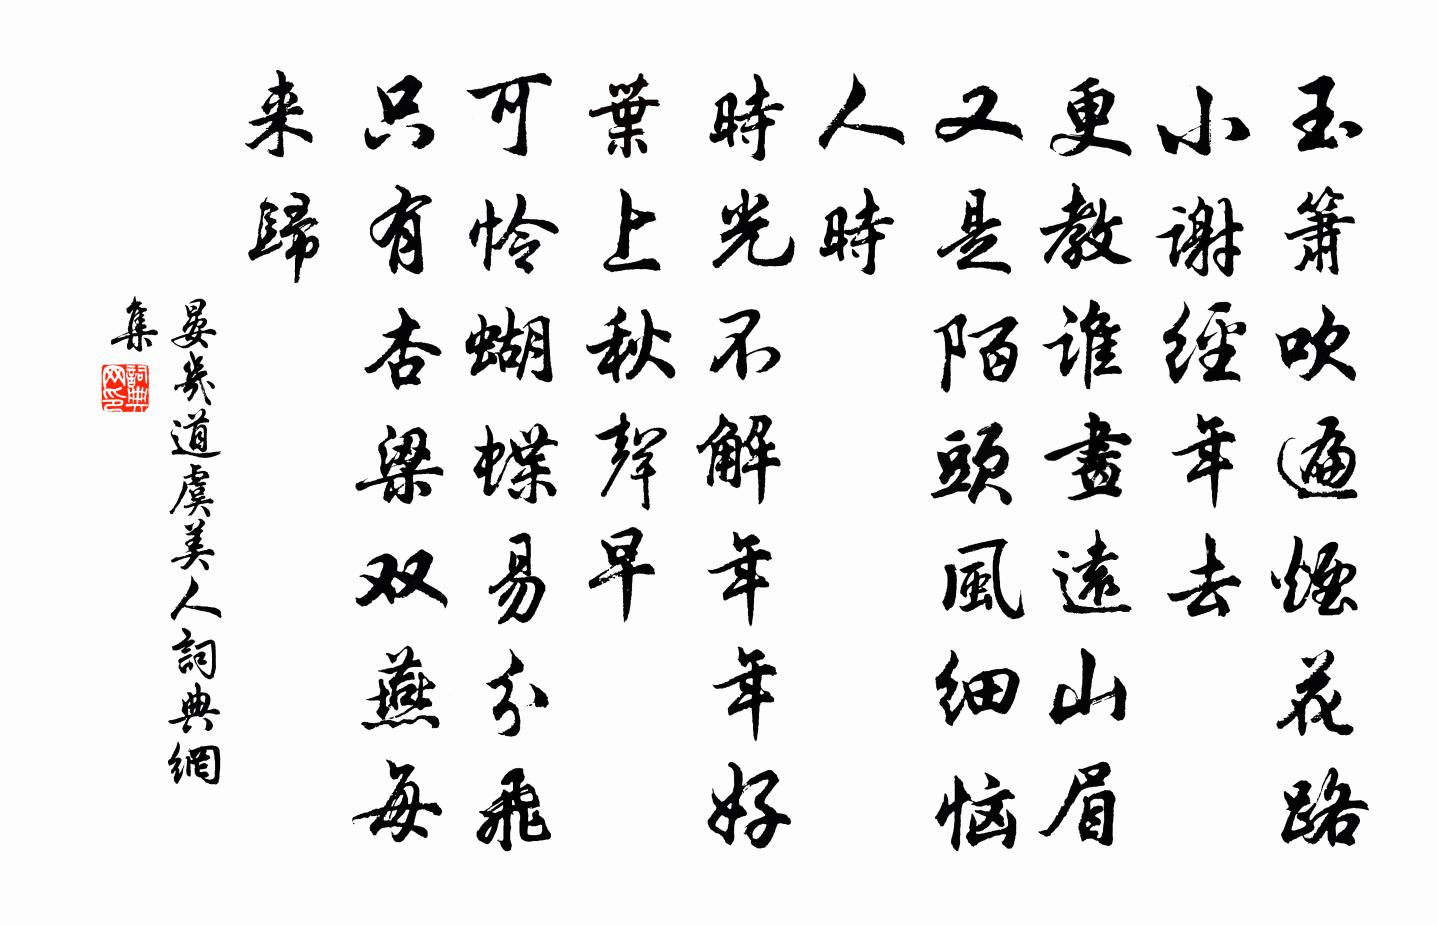 玉簫吹遍煙花路
小谢經年去
更教誰畫遠山眉
又是陌頭風细恼
人時
時光不解年年好
葉上秋聲早
可怜蝴蝶易分飛
只有杏梁双燕每
来歸
晏幾道虞美人詞典網
集
詞典
网印